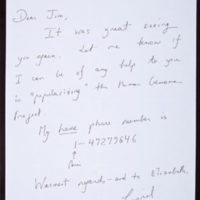 Dear Jim,
It was great seeing
you again. Let me know if
I can be of any help to you
in "popularizing" the Human Genome
Project.
My home phone number is
1-47279646
Warmest regards - and to Elizabeth,